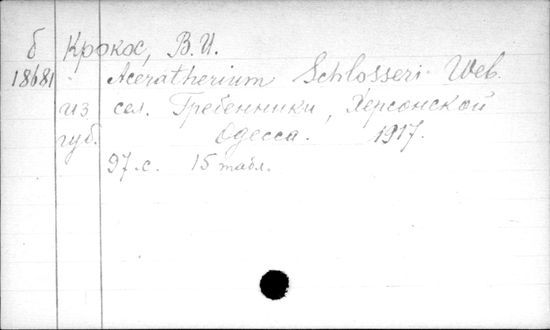 б Крокос, В.И.
18681 Aceratherium Schlosseri Web.
из сел. Гребенники, Херсонской
губ. Одесса. 1917.
97 с. 15 табл.